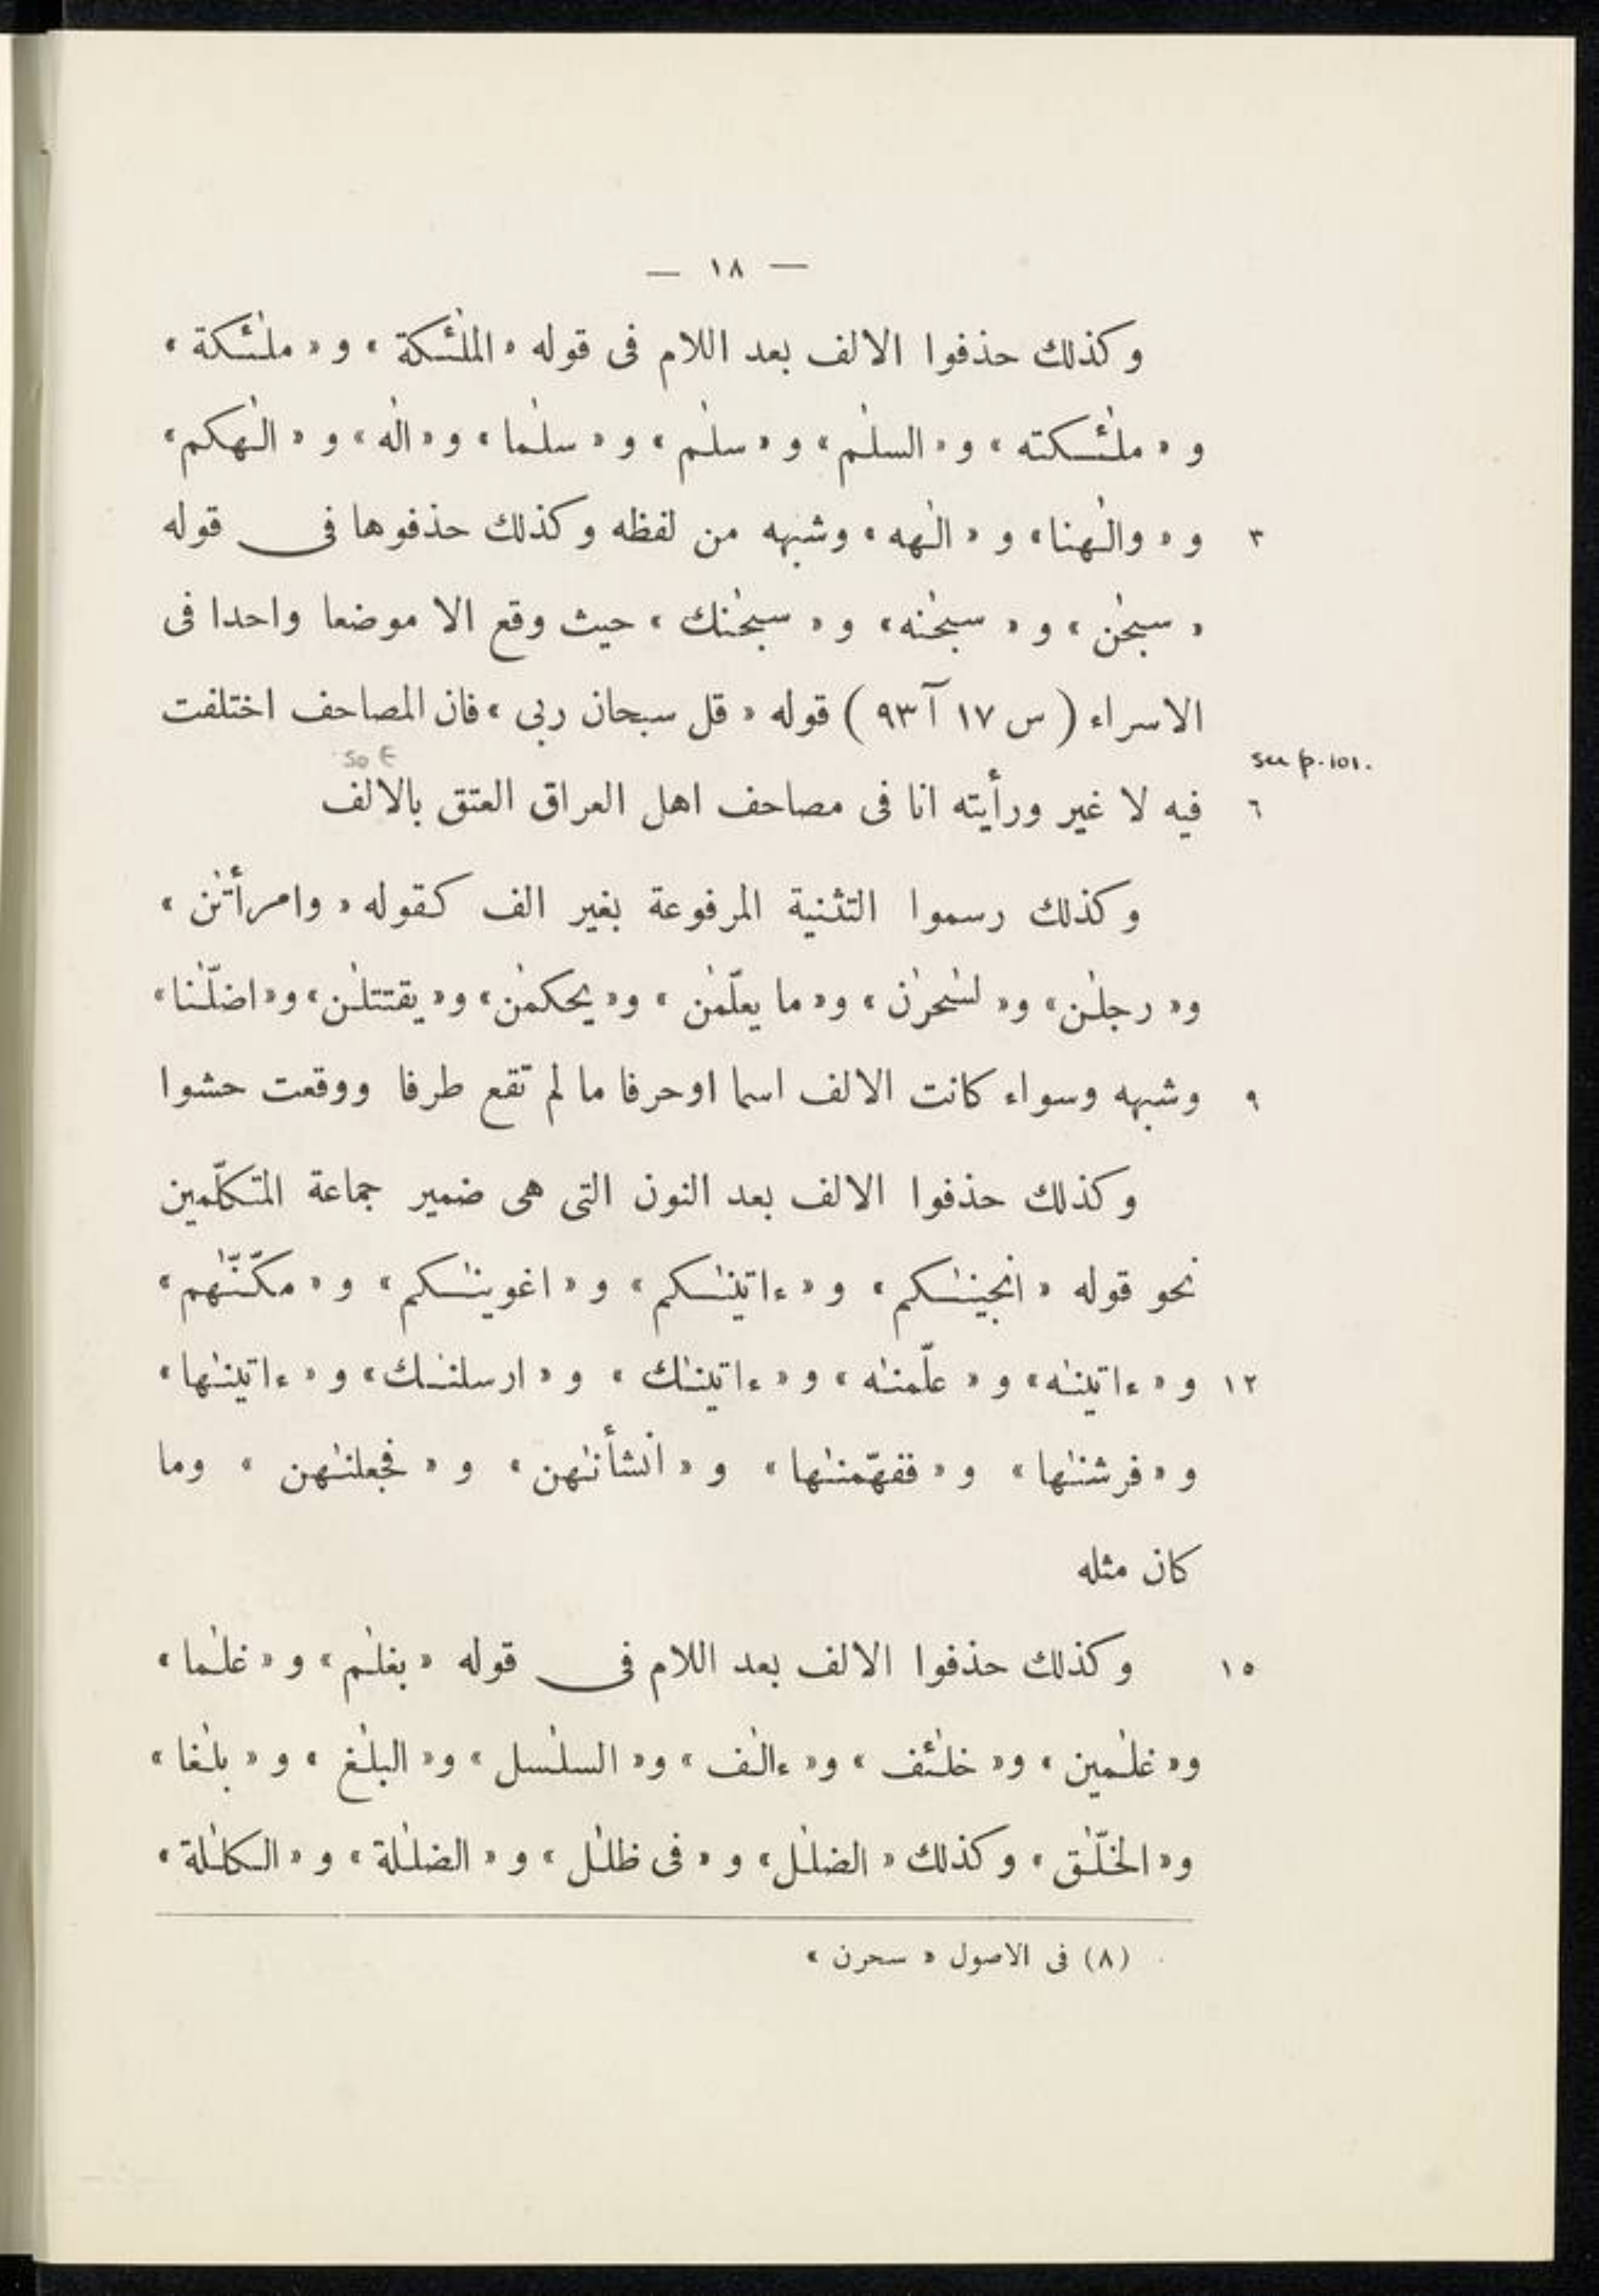 — ١٨ —
وكذلك حذفوا الالف بعد اللام فى قوله « الملٰئكة » و « ملٰئكة »
و « ملٰئكته » و « السلٰم » و « سلٰم » و « سلٰما » و « الٰه » و « الٰهكم »
٣ و « والٰهنا » و « الٰهه » وشبهه من لفظه وكذلك حذفوها فى قوله
« سبحٰن » و « سبحٰنه » و « سبحٰنك » حيث وقع الا موضعا واحدا فى
الاسراء ( س ١٧ آ ٩٣ ) قوله « قل سبحان ربى » فان المصاحف اختلفت
see p. 101.
٦ فيه لا غير ورأيته انا فى مصاحف اهل العراق العتق بالالف
وكذلك رسموا التثنية المرفوعة بغير الف كقوله « وامرأتٰن »
و « رجلٰن » و « لسٰحرٰن » و « ما يعلّمٰن » و « يحكمٰن » و « يقتتلٰن » و « اضلّٰنا »
٩ وشبهه وسواء كانت الالف اسما اوحرفا ما لم تقع طرفا ووقعت حشوا
وكذلك حذفوا الالف بعد النون التى هى ضمير جماعة المتكلّمين
نحو قوله « انجينٰكم » و « ءاتينٰكم » و « اغوينٰكم » و « مكّنّٰهم »
١٢ و « ءاتينٰه » و « علّمنٰه » و « ءاتينٰك » و « ارسلنٰك » و « ءاتينٰها »
و « فرشنٰها » و « ففهّمنٰها » و « انشأنٰهن » و « فجعلنٰهن » وما
كان مثله
١٥ وكذلك حذفوا الالف بعد اللام فى قوله « بغلٰم » و « غلٰما »
و « غلٰمين » و « خلٰئف » و « ءالٰف » و « السلٰسل » و « البلٰغ » و « بلٰغا »
و « الخلّٰق » وكذلك « الضلٰل » و « فى ظلٰل » و « الضلٰلة » و « الكلٰلة »
(٨) فى الاصول « سحرن »